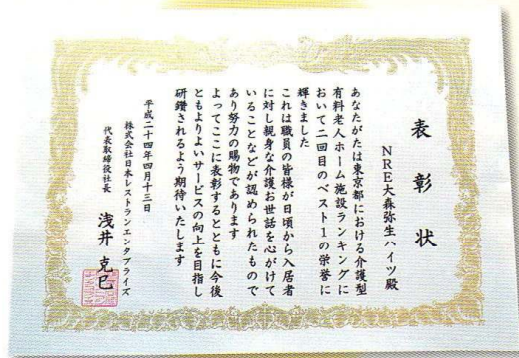 表彰状
NRE大森弥生ハイツ殿
あなたがたは東京都における介護型
有料老人ホーム施設ランキングに
おいて二回目のベスト1の栄誉に
輝きました
これは職員の皆様が日頃から入居者
に対し親身な介護お世話を心がけて
いることなどが認められたもので
あり努力の賜物であります
よってここに表彰するとともに今後
ともよりよいサービスの向上を目指し
研鑽されるよう期待いたします
平成二十四年四月十三日
株式会社日本レストランエンタプライズ
代表取締役社長 浅井克巳